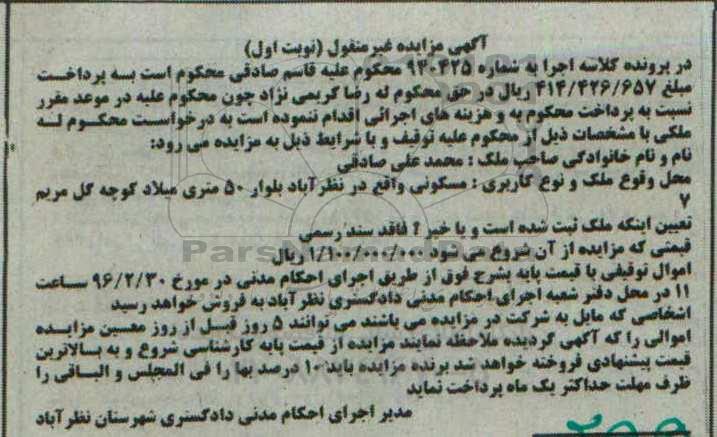 آگهی مزایده غیرمنقول (نوبت اول)
در پرونده کلاسه اجرا به شماره ۹۴۰۴۲۵ محکوم علیه قاسم صادقی محکوم است به پرداخت
مبلغ ۴۱۴/۴۲۶/۶۵۷ ریال در حق محکوم له رضا کریمی نژاد چون محکوم علیه در موعد مقرر
نسبت به پرداخت محکوم به و هزینه های اجرائی اقدام ننموده است به درخواست محکوم له
ملکی با مشخصات ذیل از محکوم علیه توقیف و با شرایط ذیل به مزایده می رود:
نام و نام خانوادگی صاحب ملک : محمد علی صادقی
محل وقوع ملک و نوع کاربری : مسکونی واقع در نظرآباد بلوار ۵۰ متری میلاد کوچه گل مریم
۷
تعیین اینکه ملک ثبت شده است و یا خیر ؟ فاقد سند رسمی
قیمتی که مزایده از آن شروع می شود ۱/۱۰۰/۰۰۰/۰۰۰ ریال
ParsNamadData
اموال توقیفی با قیمت پایه بشرح فوق از طریق اجرای احکام مدنی در مورخ ۹۶/۲/۳۰ ساعت
۱۱ در محل دفتر شعبه اجرای احکام مدنی دادگستری نظرآباد به فروش خواهد رسید
اشخاصی که مایل به شرکت در مزایده می باشند می توانند ۵ روز قبل از روز معین مزایده
اموالی را که آگهی گردیده ملاحظه نمایند مزایده از قیمت پایه کارشناسی شروع و به بالاترین
قیمت پیشنهادی فروخته خواهد شد برنده مزایده باید ۱۰ درصد بها را فی المجلس و الباقی را
ظرف مهلت حداکثر یک ماه پرداخت نماید
مدیر اجرای احکام مدنی دادگستری شهرستان نظرآباد